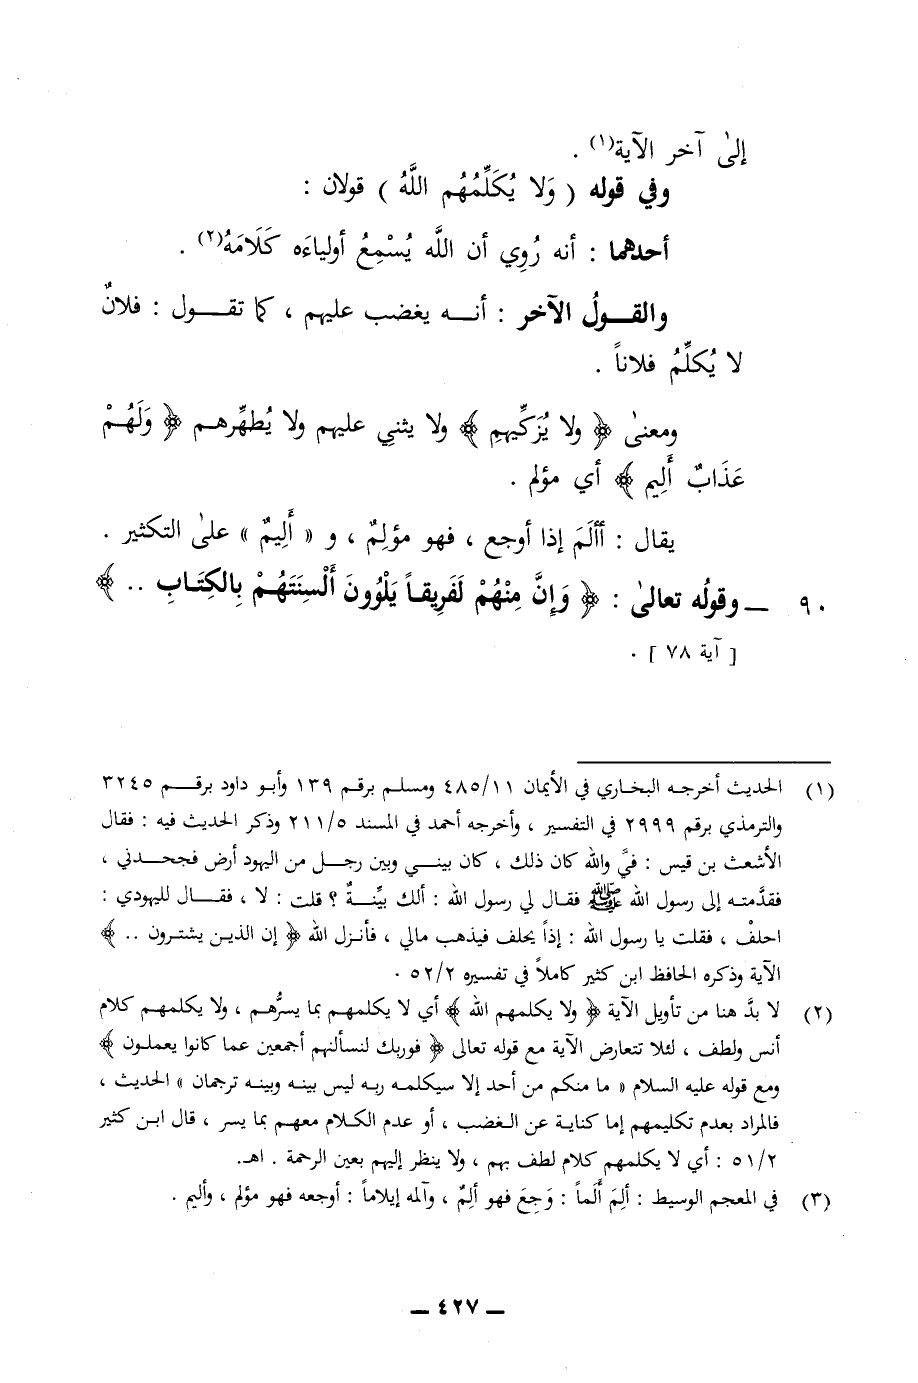 إلىٰ آخر الآية(١) .
وفي قوله ( وَلا يُكَلِّمُهُم اللَّهُ ) قولان :
أحدهما : أنه رُوِي أن اللَّه يُسْمِعُ أولياءَه كَلَامَهُ(٢) .
والقــولُ الآخر : أنــه يغضب عليهم ، كما تقــول : فلانٌ
لا يُكلِّمُ فلاناً .
ومعنىٰ ﴿ ولا يُزَكِّيهِم ﴾ ولا يثنِي عليهم ولا يُطهِّرهــم ﴿ وَلَهُمْ
عَذَابٌ أَلِيم ﴾ أي مؤلم .
يقال : أألَمَ إذا أوجع ، فهو مؤلِمٌ ، و « أَلِيمٌ » علىٰ التكثير .
٩٠ ــ وقولُه تعالىٰ : ﴿ وَإِنَّ مِنْهُمْ لَفَرِيقاً يَلْوُونَ أَلْسِنَتَهُمْ بِالكِتَابِ .. ﴾
[ آية ٧٨ ] .
(١) الحديث أخرجـه البخـاري في الأيمان ٤٨٥/١١ ومسلـم برقـم ١٣٩ وأبـو داود برقــم ٣٢٤٥
والترمذي برقم ٢٩٩٩ في التفسير ، وأخرجه أحمد في المسند ٢١١/٥ وذكر الحديث فيه : فقال
الأشعث بن قيس : فيَّ والله كان ذلك ، كان بينــي وبين رجــل من اليهود أرض فجحدني ،
فقدَّمتـه إلى رسول الله ﷺ فقـال لي رسول الله : ألك بيِّنــةٌ ؟ قلت : لا ، فقــال لليهودي :
احلفْ ، فقلت يا رسول الله : إذاً يحلف فيذهب مالي ، فأنـزل الله ﴿ إن الذيـن يشتـرون .. ﴾
الآية وذكره الحافظ ابن كثير كاملاً في تفسيره ٥٢/٢ .
(٢) لا بدَّ هنا من تأويل الآية ﴿ ولا يكلمهم الله ﴾ أي لا يكلمهـم بما يسرُّهـم ، ولا يكلمهـم كلام
أنس ولطف ، لئلا تتعارض الآية مع قوله تعالى ﴿ فوربك لنسألنهم أجمعين عما كانوا يعملـون ﴾
ومع قوله عليه السلام « ما منكم من أحد إلا سيكلمـه ربـه ليس بينـه وبينـه ترجمان » الحديث ،
فالمراد بعدم تكليمهم إما كنايـة عن الـغضب ، أو عدم الكـلام معهـم بما يسر ، قال ابـن كثير
٥١/٢ : أي لا يكلمهم كلام لطف بهم ، ولا ينظر إليهم بعين الرحمة . اهـ.
(٣) في المعجم الوسيط : ألِمَ أَلَماً : وَجِعَ فهو ألِمٌ ، وآلمه إيلاماً : أوجعه فهو مؤلم ، وأليم .
ــ ٤٢٧ ــ